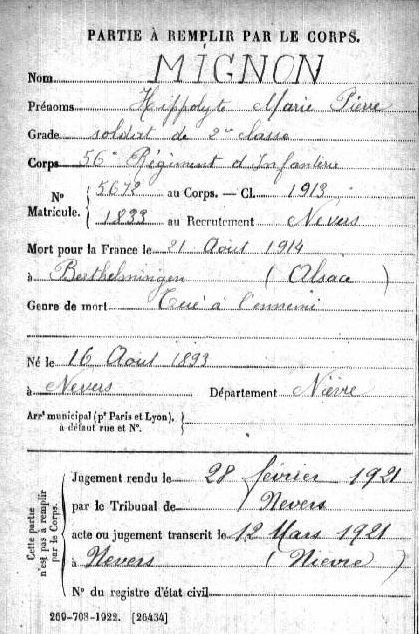 PARTIE À REMPLIR PAR LE CORPS.
Nom MIGNON
Prénoms Hippolyte Marie Pierre
Grade soldat de 2e classe
Corps 56e Régiment d'Infanterie
N° Matricule. 5672 au Corps. — Cl. 1913
1833 au Recrutement Nevers
Mort pour la France le 21 Août 1914
à Berthelmingen (Alsace)
Genre de mort Tué à l'ennemi
Né le 16 Août 1893
à Nevers Département Nièvre
Arrt municipal (pr Paris et Lyon), à défaut rue et N°.
Cette partie n'est pas à remplir par le Corps.
Jugement rendu le 28 février 1921
par le Tribunal de Nevers
acte ou jugement transcrit le 12 Mars 1921
à Nevers (Nièvre)
N° du registre d'état civil
269-708-1922. [26434]